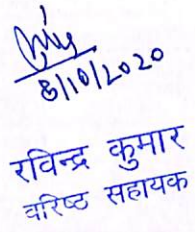 8/10/2020
रविन्द्र कुमार
वरिष्ठ सहायक